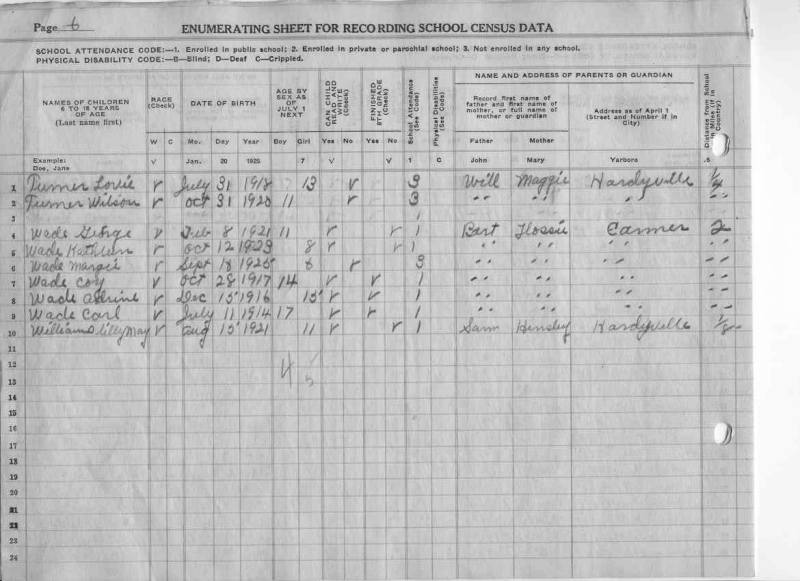 Page 6
ENUMERATING SHEET FOR RECORDING SCHOOL CENSUS DATA
SCHOOL ATTENDANCE CODE:—1. Enrolled in public school; 2. Enrolled in private or parochial school; 3. Not enrolled in any school.
PHYSICAL DISABILITY CODE:—B—Blind; D—Deaf C—Crippled.
NAMES OF CHILDREN 6 TO 18 YEARS OF AGE (Last name first) RACE (Check) DATE OF BIRTH AGE BY SEX AS OF JULY 1 NEXT CAN CHILD READ AND WRITE (Check) FINISHED 8TH GRADE (Check) School Attendance (See Code) Physical Disabilities (See Code) NAME AND ADDRESS OF PARENTS OR GUARDIAN Distance from School in Miles (if in Country)
Record first name of father and first name of mother, or full name of mother or guardian Address as of April 1 (Street and Number if in City)
W C Mo. Day Year Boy Girl Yes No Yes No Father Mother
Example: Doe, Jane V Jan. 20 1925 7 V V 1 C John Mary Yarboro .5
1 Turner Lovie v July 31 1918 13 v 3 Will Maggie Hardyville 1/4
2 Turner Wilson v Oct 31 1920 11 v 3 " " " "
3
4 Wade George v Feb 8 1921 11 v v 1 Bart Flossie Canmer 2
5 Wade Kathleen v Oct 12 1923 8 v v 1 " " " "
6 Wade Margie v Sept 18 1925 6 v 3 " " " "
7 Wade Coy v Oct 28 1917 14 v v 1 " " " "
8 Wade v Dec 15 1916 15 v v 1 " " " "
9 Wade Carl v July 11 1914 17 v v 1 " " " "
10 Williams Lilly May v Aug 15 1921 11 v v 1 Sam Hensley Hardyville 1/8
11
12
13
14
15
16
17
18
19
20
21
22
23
24